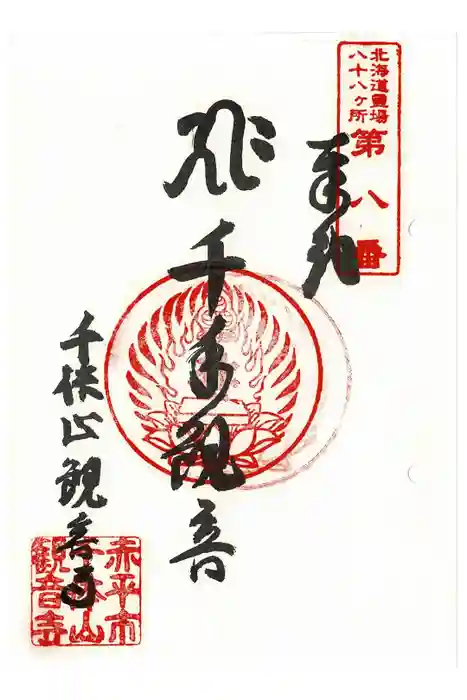 北海道霊場
八十八ヶ所
第八番
奉拝
千手観音
千保山観音寺
赤平市
千保山
観音寺